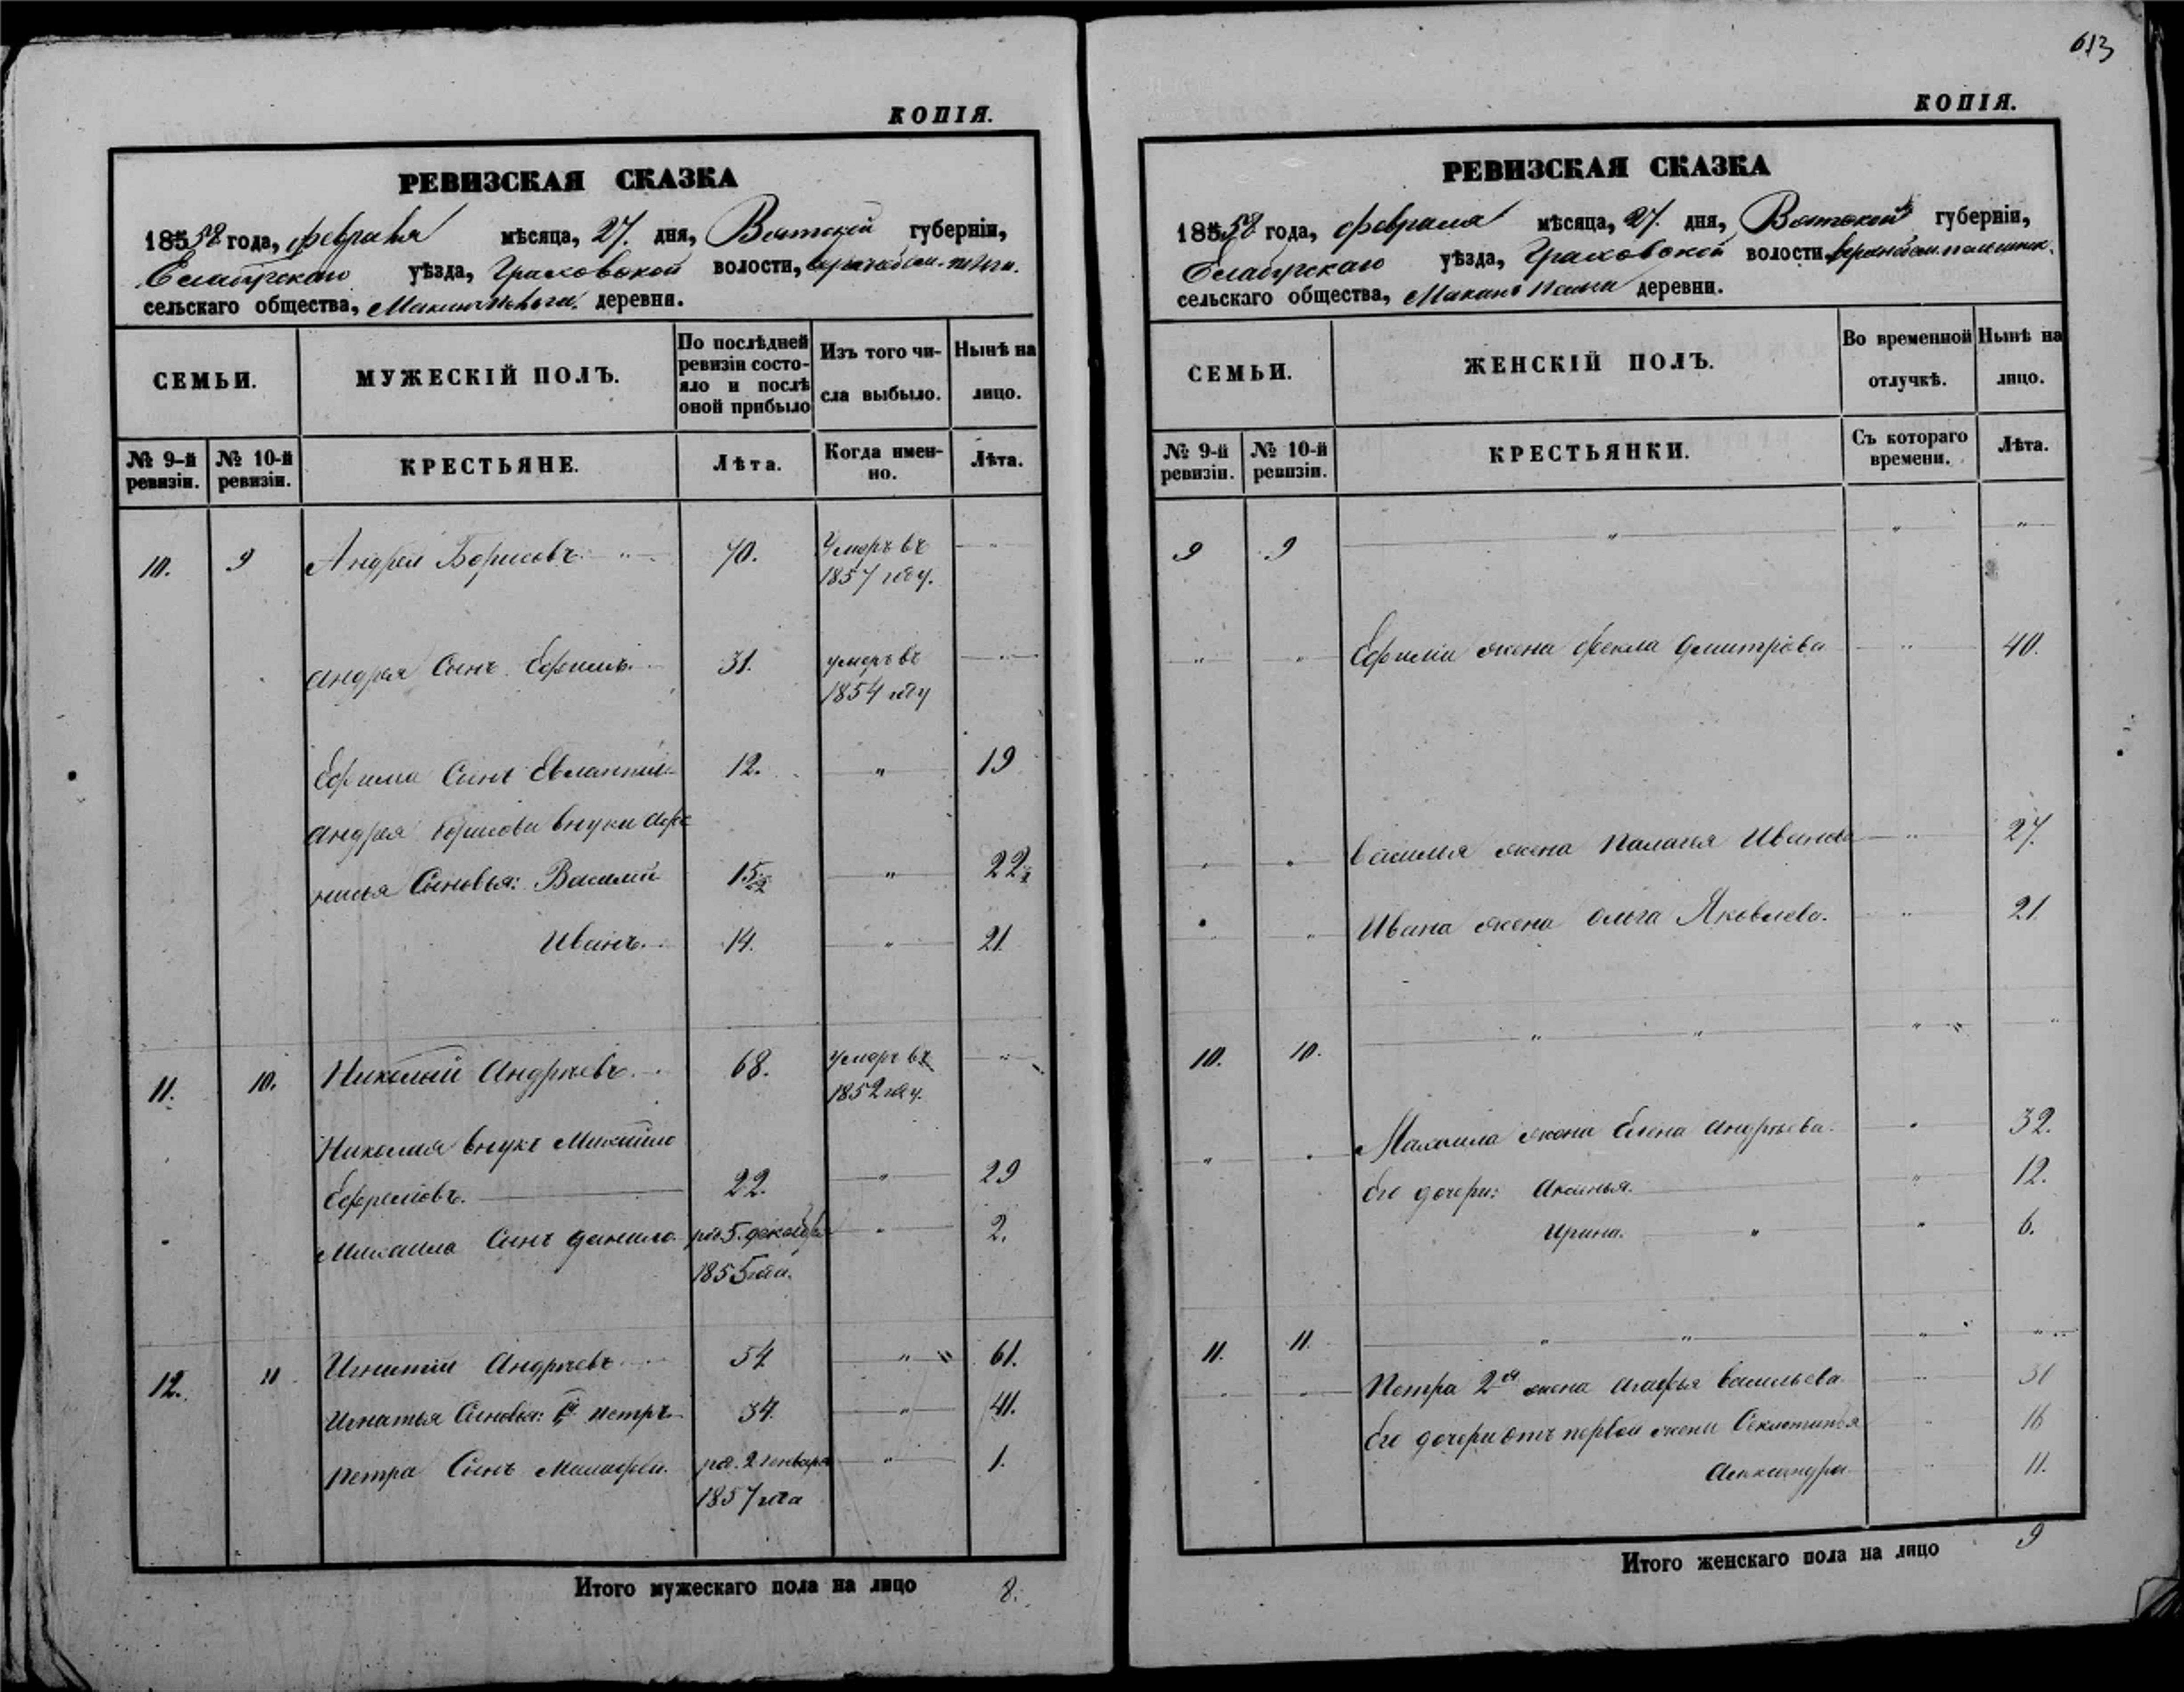 613
КОПІЯ.
РЕВИЗСКАЯ СКАЗКА
185 58 года, февраля мѣсяца, 27. дня, Вятской губерніи,
Елабугскаго уѣзда, Граховской волости,
сельскаго общества, деревни.
СЕМЬИ.
МУЖЕСКІЙ ПОЛЪ.
По послѣдней ревизіи состояло и послѣ оной прибыло
Изъ того числа выбыло.
Нынѣ на лицо.
№ 9-й ревизіи.
№ 10-й ревизіи.
КРЕСТЬЯНЕ.
Лѣта.
Когда именно.
Лѣта.
10. 9 Андрей Борисовъ. 70. Умеръ въ
1857 году.
Андрея Сынъ Ефимъ. 31. умеръ въ
1854 году
Ефима Сынъ 12. " 19
Андрея Борисова внуки
Сыновья: Василий 15. " 22
Иванъ. 14. " 21
11. 10. Николай Андреевъ. 68. умеръ въ
1852 году.
Николая внукъ Михайло
Ефремовъ. 22. " 29
Михаила Сынъ Данило. род. 5. декабря " 2.
1855 года.
12. 11 Игнатій Андреевъ 54 " 61.
Игнатья Сыновья: Петръ. 34. " 41.
Петра Сынъ Малафей. род. 2 генваря " 1.
1857 года
Итого мужескаго пола на лицо 8.
КОПІЯ.
РЕВИЗСКАЯ СКАЗКА
185 58 года, февраля мѣсяца, 27. дня, Вятской губерніи,
Елабугскаго уѣзда, Граховской волости
сельскаго общества, деревни.
СЕМЬИ.
ЖЕНСКІЙ ПОЛЪ.
Во временной отлучкѣ.
Нынѣ на лицо.
№ 9-й ревизіи.
№ 10-й ревизіи.
КРЕСТЬЯНКИ.
Съ котораго времени.
Лѣта.
9 9 " " "
" " Ефима жена Фекла Дмитріева " 40.
" " Василья жена Палагея Иванова " 27.
" " Ивана жена Ольга Яковлева. " 21.
10. 10. " " "
" " Михаила жена Елена Андреева. " 32.
Его дочери: Аксинья. " 12.
Ирина. " " 6.
11. 11. " " "
" " Петра 2я жена Агафья Васильева " 31
Его дочери отъ первой жены " 16
Александра " 11.
Итого женскаго пола на лицо 9